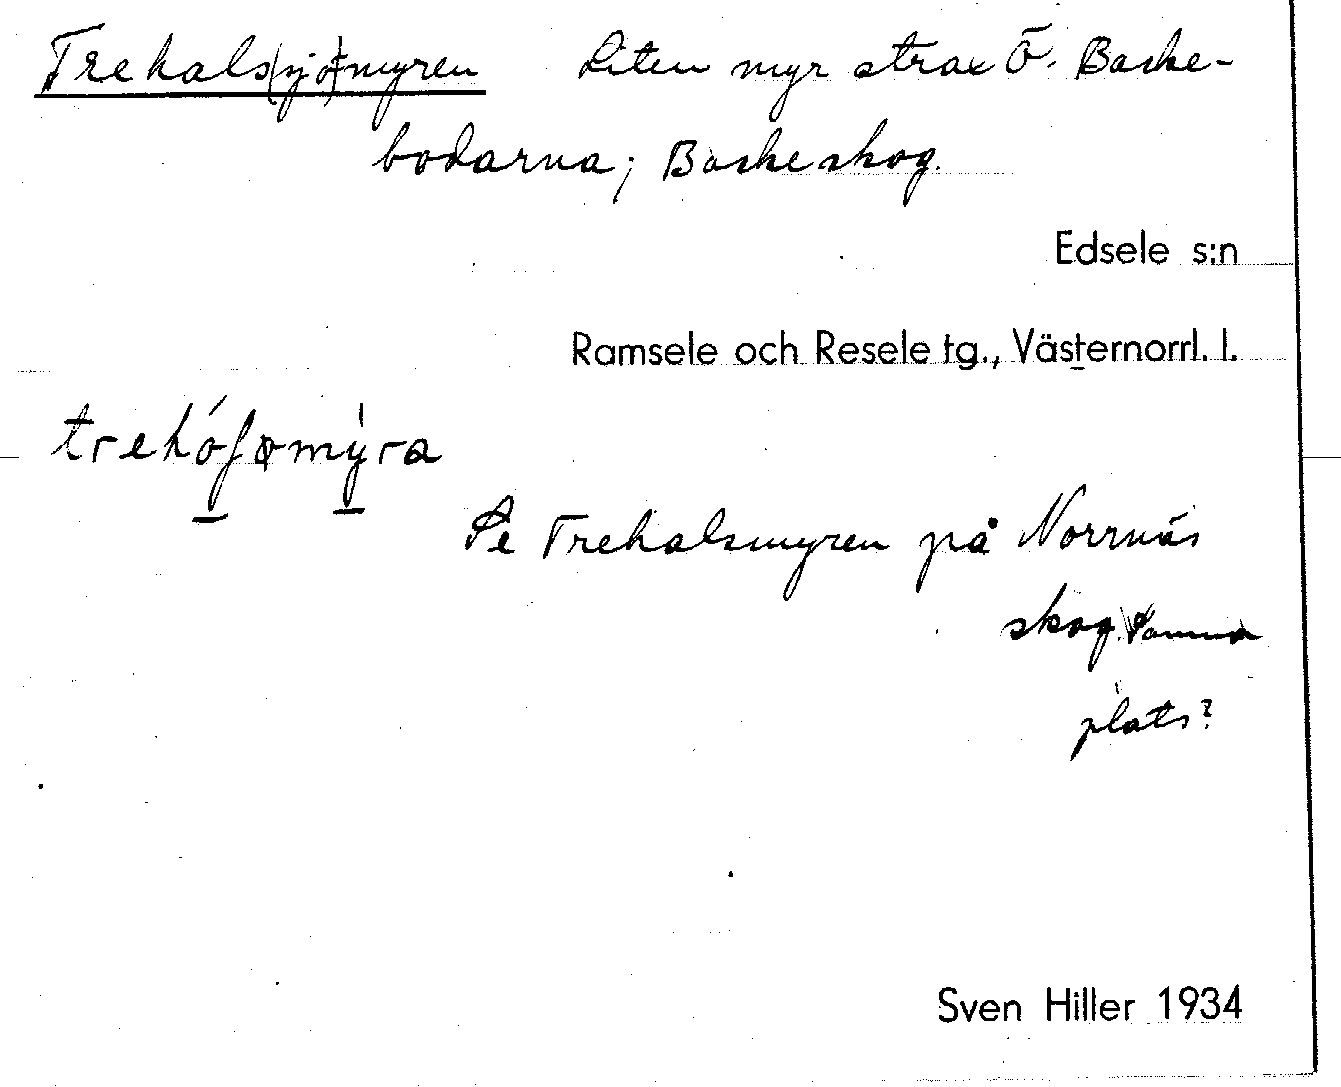 Trehals(sjö)myren Liten myr strax Ö. Baske-
bodarna; Baskeskog.
Edsele s:n
Ramsele och Resele tg., Västernorrl. l.
Se Trehalsmyren på Norrnäs
skog. Samma
plats?
Sven Hiller 1934